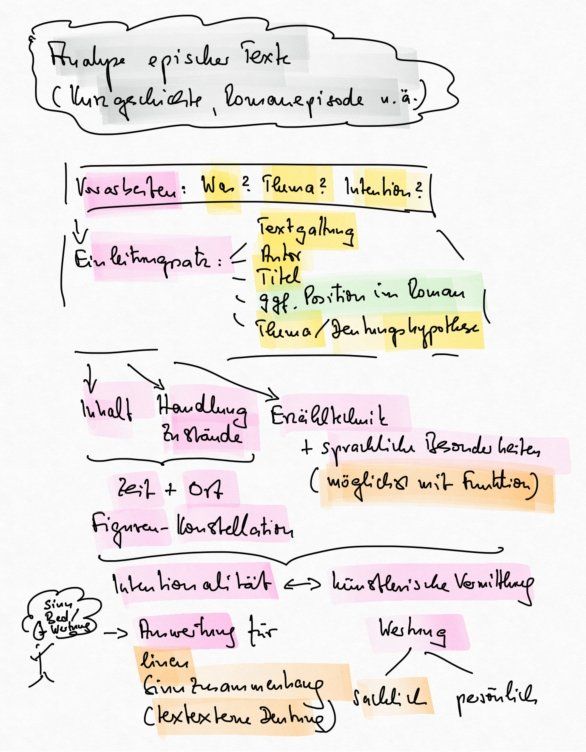 Analyse epischer Texte
(Kurzgeschichte, Romanepisode u.ä.)
Vorarbeiten: Was? Thema? Intention?
Einleitungssatz:
- Textgattung
- Autor
- Titel
- ggf. Position im Roman
- Thema/Deutungshypothese
Inhalt
Handlung
Zustände
Erzähltechnik
+ sprachliche Besonderheiten
(möglichst mit Funktion)
Zeit + Ort
Figuren-Konstellation
Intentionalität ↔ künstlerische Vermittlung
Sinn
Bed/
+ Wertung
→ Auswertung für
einen
Sinnzusammenhang
(textexterne Deutung)
Wertung
sachlich persönlich